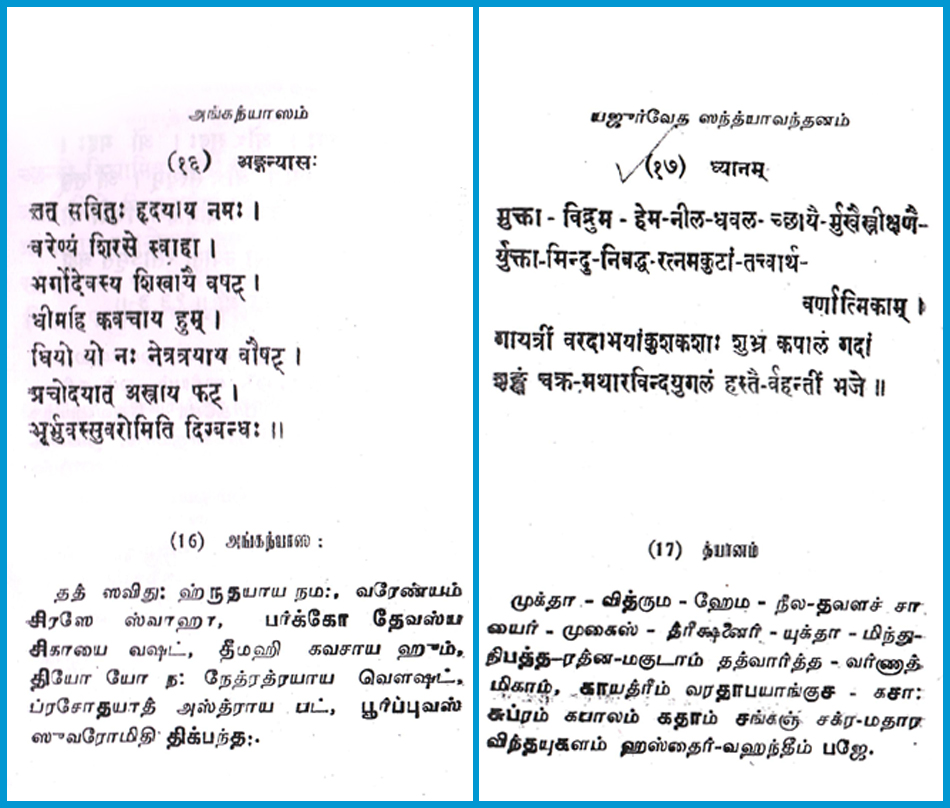 அங்கந்யாஸம்
(१६) अङ्गन्यासः
तत् सवितुः हृदयाय नमः ।
वरेण्यं शिरसे स्वाहा ।
भर्गोदेवस्य शिखायै वषट् ।
धीमहि कवचाय हुम् ।
धियो यो नः नेत्रत्रयाय वौषट् ।
प्रचोदयात् अस्त्राय फट् ।
भूर्भुवस्सुवरोमिति दिग्बन्धः ॥
(16) அங்கந்யாஸ :
தத் ஸவிது: ஹ்ருதயாய நம:, வரேண்யம்
சிரஸே ஸ்வாஹா, பர்க்கோ தேவஸ்ய
சிகாயை வஷட், தீமஹி கவசாய ஹும்,
தியோ யோ ந: நேத்ரத்ரயாய வௌஷட்,
ப்ரசோதயாத் அஸ்த்ராய பட், பூர்ப்புவஸ்
ஸுவரோமிதி திக்பந்த:.
யஜுர்வேத ஸந்த்யாவந்தனம்
(१७) ध्यानम्
मुक्ता - विद्रुम - हेम-नील-धवल- च्छायै-र्मुखैस्त्रीक्षणै-
र्युक्ता-मिन्दु-निबद्ध-रत्नमकुटां-तत्त्वार्थ-
वर्णात्मिकाम् ।
गायत्रीं वरदाभयांकुशकशाः शुभ्रं कपालं गदां
शङ्खं चक्र-मथारविन्दयुगलं हस्तै-र्वहन्तीं भजे ॥
(17) த்யானம்
முக்தா - வித்ரும - ஹேம - நீல-தவளச் சா
யைர் - முகைஸ் - த்ரீக்ஷணைர் - யுக்தா - மிந்து-
நிபத்த-ரத்ன-மகுடாம் தத்வார்த்த - வர்ணாத்
மிகாம், காயத்ரீம் வரதாபயாங்குச - கசா:
சுப்ரம் கபாலம் கதாம் சங்கஞ் சக்ர-மதார
விந்தயுகளம் ஹஸ்தைர்-வஹந்தீம் பஜே.